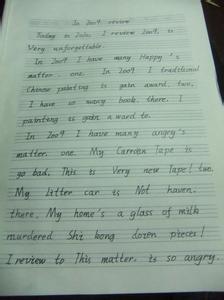 In 2009 review
Today is 2010. I review 2009. is
Very unforgettable.
In 2009 I have many Happy 's
matter. one. In 2009 I traditional
Chinese painting is gain award, two,
I have so many book. there. I
painting is gain a ward to.
In 2009 I have many angry's
matter. one. My Carroen tape is
go bad, This is Very new tape! two.
My litter car is Not haven.
there, My home's a glass of milk
murdered Shi kong doren pieces!
I review to This matter. is so angry.